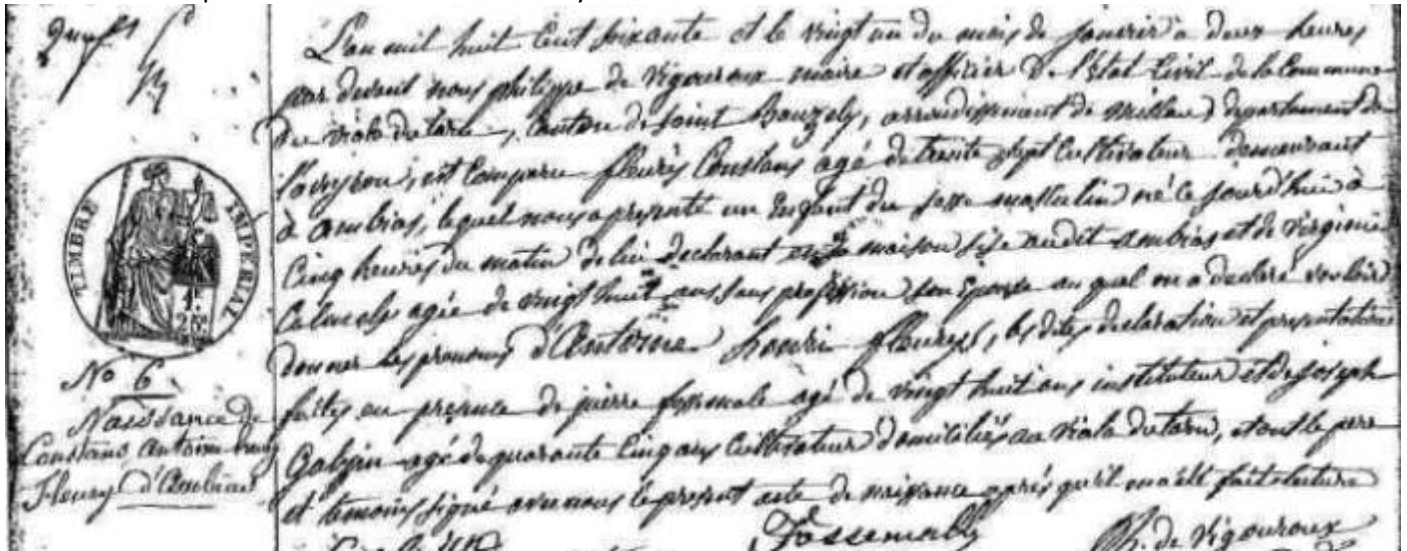 L'an mil huit Cent soixante et le vingt un du mois de janvier à deux heures
par devant nous philippe de Vigouroux maire et officier de l'état Civil de la Commune
du viala du tarn, Canton de saint Bauzely, arrondissement de millau, département de
l'aveyron, est Comparu fleury Constans agé de trente sept Cultivateur demeurant
à ambias, lequel nous a presenté un Enfant du sexe masculin né ce jourd'hui à
Cinq heures du matin de lui declarant en sa maison sise audit ambias et de virginie
agée de vingt huit ans sans profession son Epouse au qual on a declaré vouloir
donner les prenoms d'Antoine henri fleury, les dites declaration et presentation
faites en presence de pierre fossemale agé de vingt huit ans instituteur et de joseph
agé de quarante Cinq ans Cultivateur domiciliés au viala du tarn, et ont le pere
et temoins signé avec nous le present acte de naissance après qu'il en a été fait lecture
TIMBRE IMPERIAL
No 6.
Naissance de
Constans, antoine henry
Fleury d'Ambias
Fossemalle
Ph. de Vigouroux